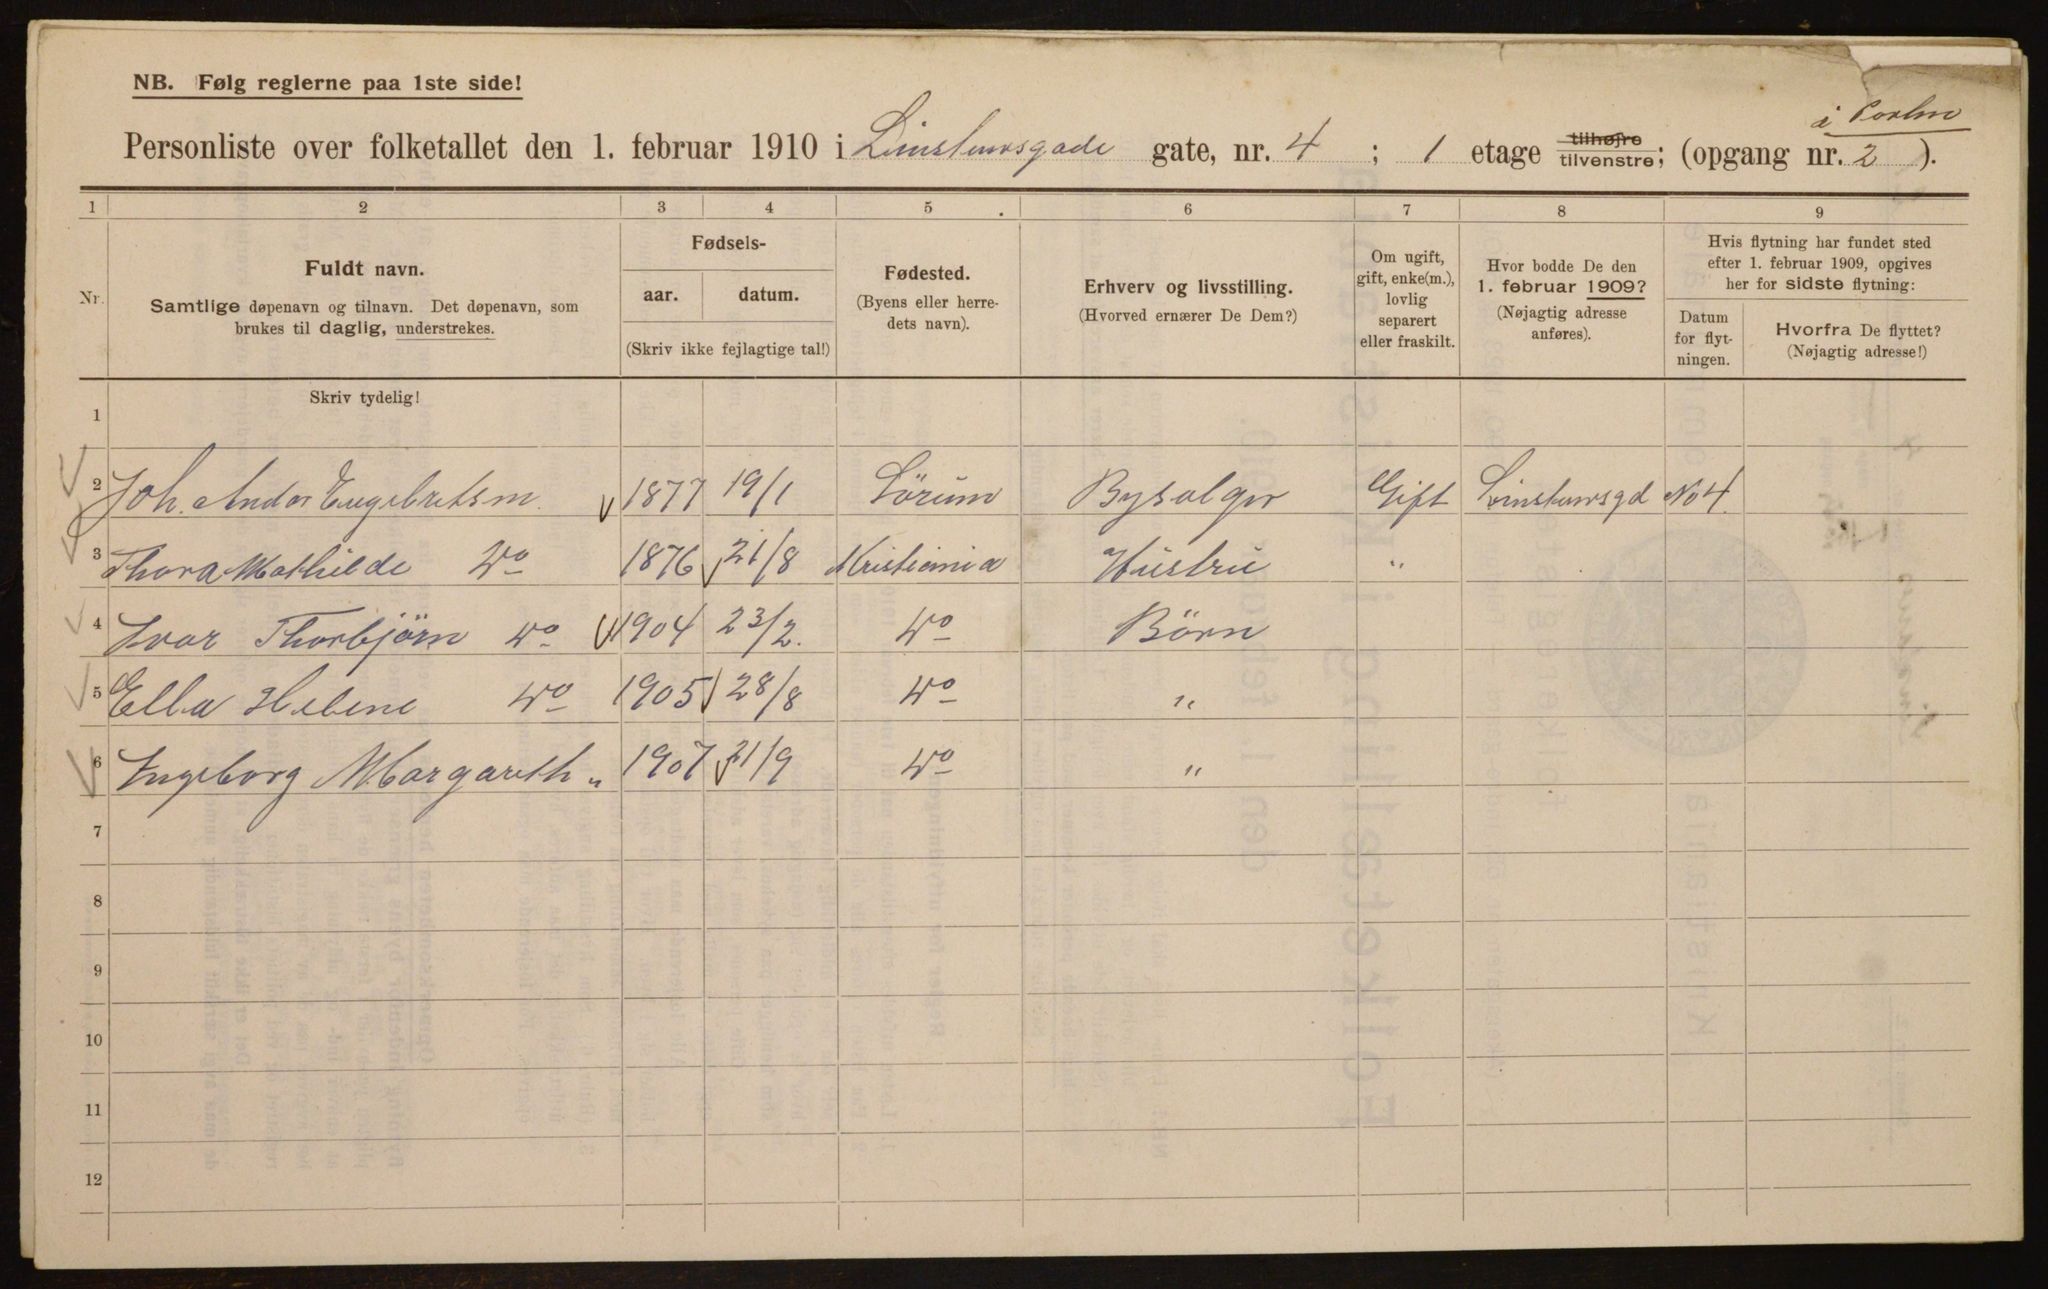 NB. Følg reglerne paa 1ste side!
i Portun
Personliste over folketallet den 1. februar 1910 i Linstowsgade gate, nr. 4 ; 1 etage tilhøjre tilvenstre; (opgang nr. 2 ).
1 2 3 4 5 6 7 8 9
Nr.
Fuldt navn.
Samtlige døpenavn og tilnavn. Det døpenavn, som
brukes til daglig, understrekes.
Fødsels-
aar. datum.
(Skriv ikke fejlagtige tal!)
Fødested.
(Byens eller herre-
dets navn).
Erhverv og livsstilling.
(Hvorved ernærer De Dem?)
Om ugift,
gift, enke(m.),
lovlig
separert
eller fraskilt.
Hvor bodde De den
1. februar 1909?
(Nøjagtig adresse
anføres).
Hvis flytning har fundet sted
efter 1. februar 1909, opgives
her for sidste flytning:
Datum
for flyt-
ningen.
Hvorfra De flyttet?
(Nøjagtig adresse!)
Skriv tydelig!
1
2 Joh. Andor Engebretsen 1877 19/1 Sørum Bysalger Gift Linstowsgd No 4.
3 Thora Mathilde Do 1876 21/8 Kristiania Hustru "
4 Ivar Thorbjörn Do 1904 23/2. Do Börn
5 Ella Helene Do 1905 28/8 Do "
6 Ingeborg Margareth " 1907 21/9 Do "
7
8
9
10
11
12